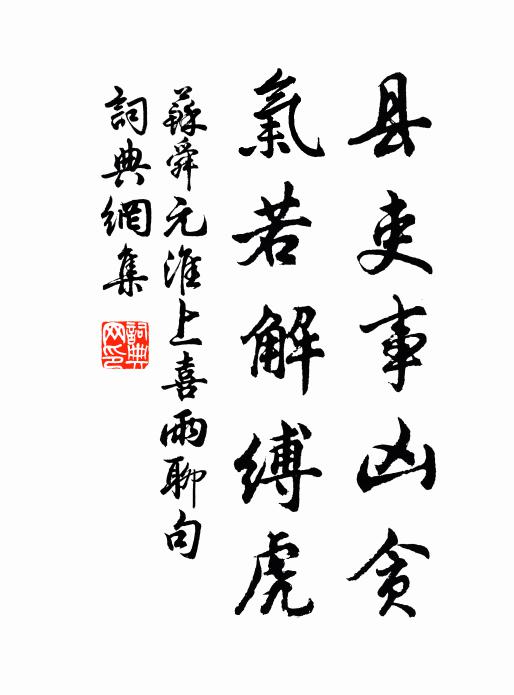 县吏事凶贪
氣若解縛虎
蘇舜元淮上喜雨聊句
詞典網集
詞典網印